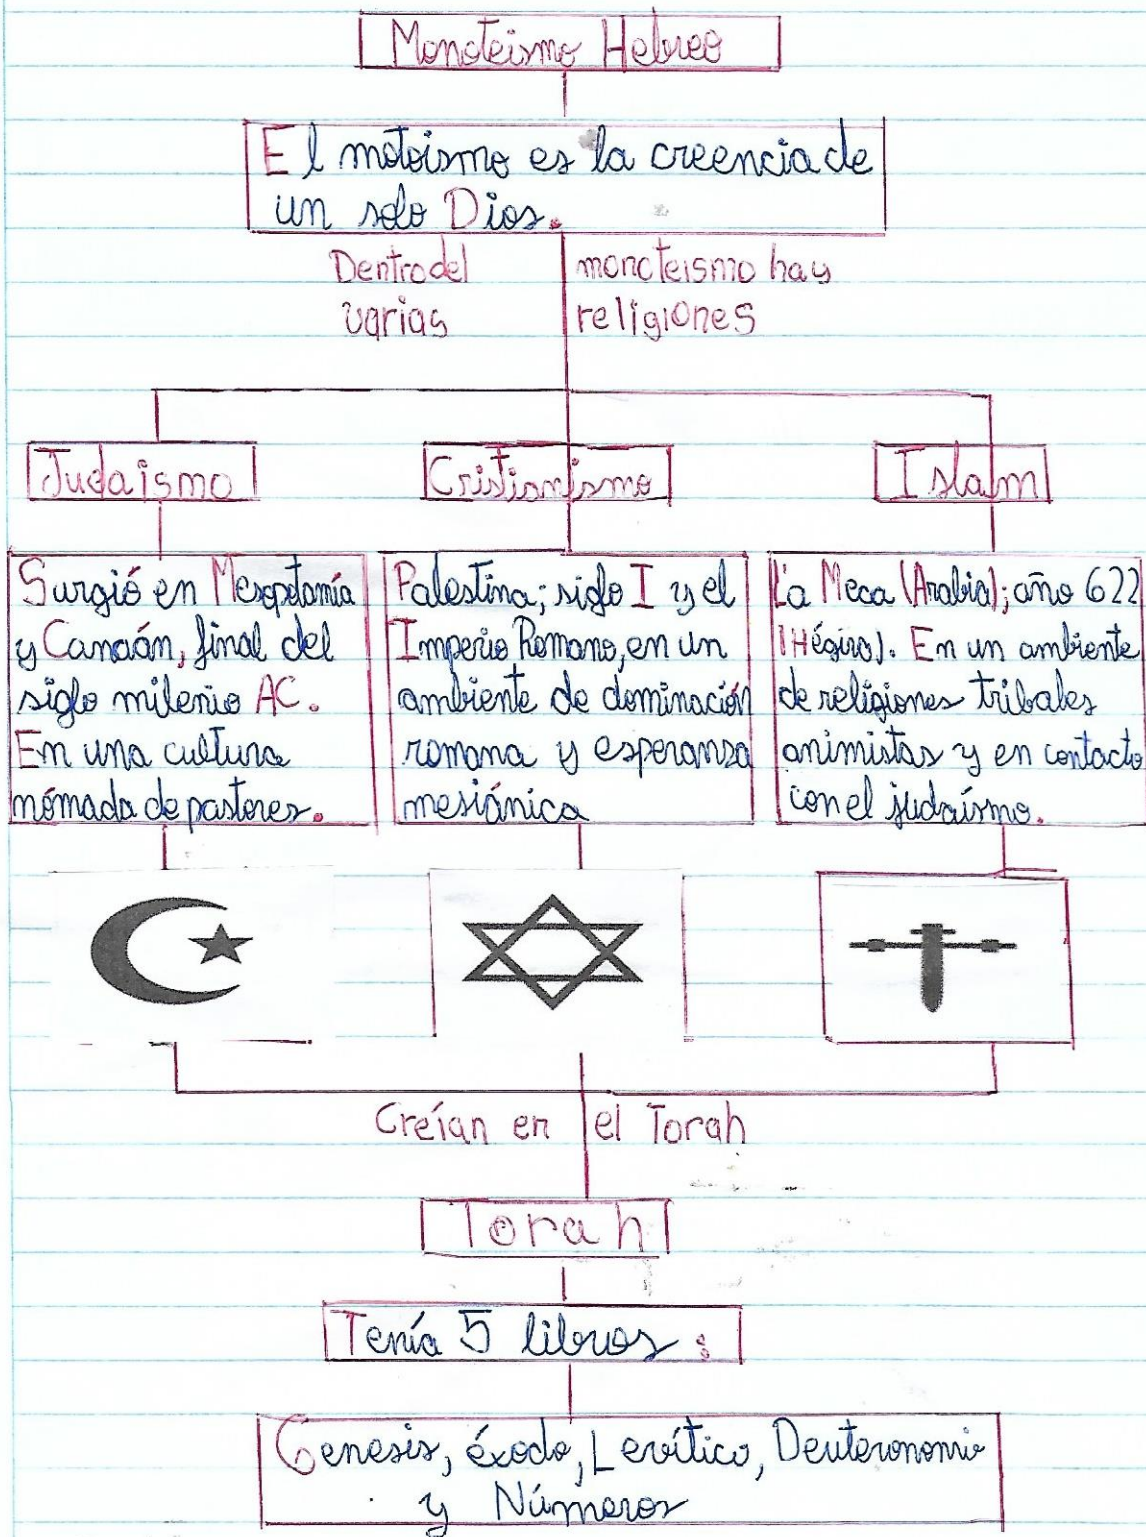 Monoteismo Hebreo
El motoismo es la creencia de
un solo Dios.
Dentro del monoteismo hay
varias religiones
Judaismo
Cristianismo
Islam
Surgió en Mesopotamía
y Canaán, final del
siglo milenio AC.
En una cultura
nómada de pastores.
Palestina; siglo I y el
Imperio Romano, en un
ambiente de dominación
romana y esperanza
mesiánica
La Meca (Arabia); año 622
(Hégira). En un ambiente
de religiones tribales
animistas y en contacto
con el judaísmo.
Creían en el Torah
Torah
Tenía 5 libros:
Genesis, éxodo, Levítico, Deuteronomio
y Números